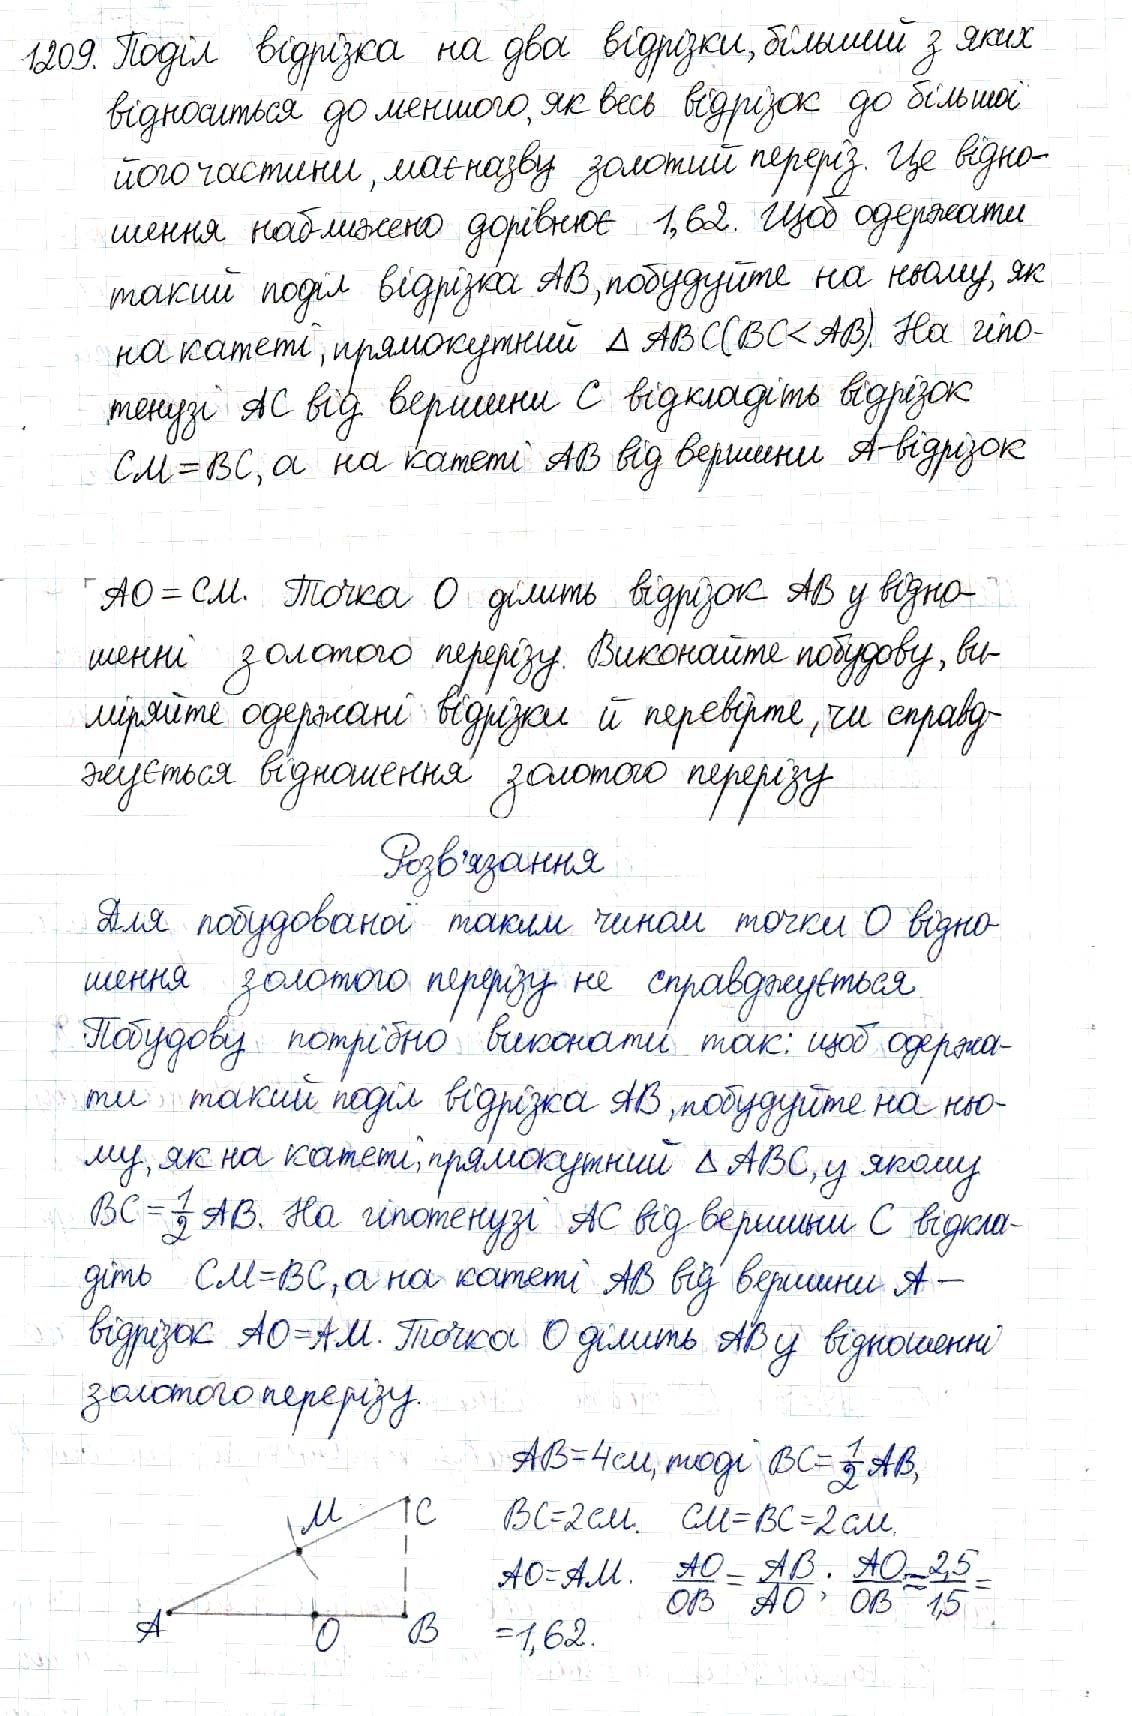 1209. Поділ відрізка на два відрізки, більший з яких
відноситься до меншого, як весь відрізок до більшої
його частини, має назву золотий переріз. Це відно-
шення наближено дорівнює 1,62. Щоб одержати
такий поділ відрізка AB, побудуйте на ньому, як
на катеті, прямокутний △ ABC (BC < AB). На гіпо-
тенузі AC від вершини C відкладіть відрізок
CM = BC, а на катеті AB від вершини A - відрізок
AO = CM. Точка O ділить відрізок AB у відно-
шенні золотого перерізу. Виконайте побудову, ви-
міряйте одержані відрізки й перевірте, чи справд-
жується відношення золотого перерізу
Розв'язання
Для побудованої таким чином точки O відно-
шення золотого перерізу не справджується.
Побудову потрібно виконати так: щоб одержа-
ти такий поділ відрізка AB, побудуйте на ньо-
му, як на катеті, прямокутний △ ABC, у якому
BC = 1/2 AB. На гіпотенузі AC від вершини C відкла-
діть CM = BC, а на катеті AB від вершини A —
відрізок AO = AM. Точка O ділить AB у відношенні
золотого перерізу.
AB = 4 см, тоді BC = 1/2 AB,
BC = 2 см. CM = BC = 2 см.
AO = AM. AO/OB = AB/AO; AO/OB ≈ 2,5/1,5 =
= 1,62.
M C
A O B